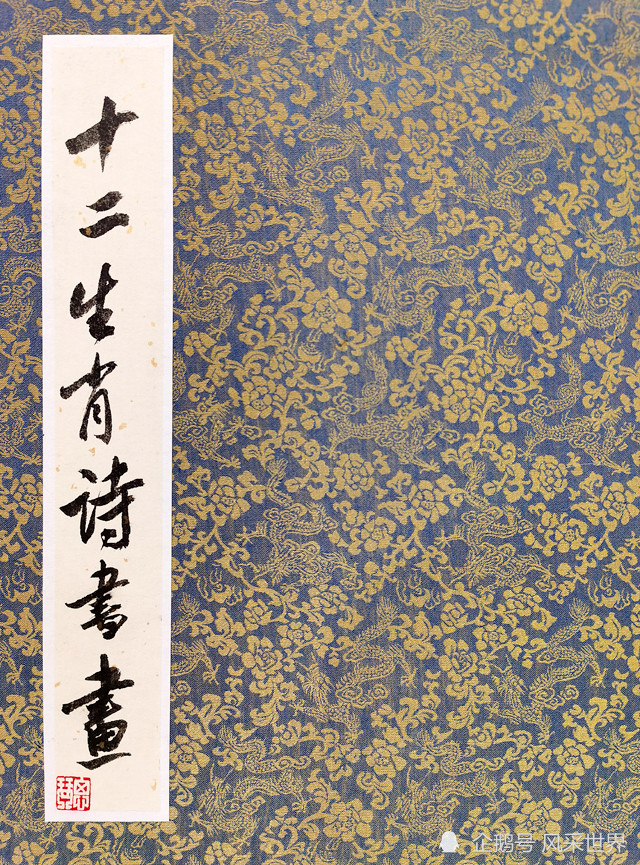 十二生肖詩書畫
企鹅号 风采世界